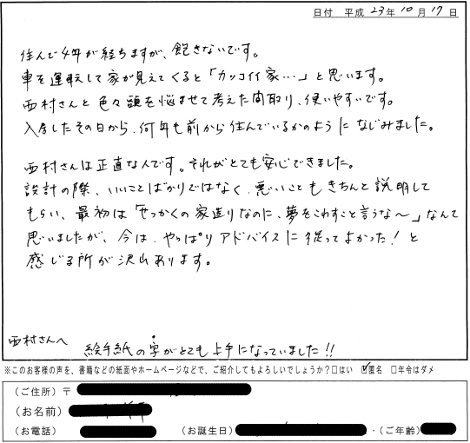 日付 平成 23年 10月 17日
住んで4年が経ちますが、飽きないです。
車を運転して家が見えてくると「カッコイイ家…」と思います。
西村さんと色々頭を悩ませて考えた間取り、使いやすいです。
入居したその日から、何年も前から住んでいるかのようになじみました。
西村さんは正直な人です。それがとても安心できました。
設計の際、いいことばかりではなく、悪いこともきちんと説明して
もらい、最初は「せっかくの家造りなのに、夢をこわすこと言うな〜」なんて
思いましたが、今は、やっぱりアドバイスに従ってよかった!と
感じる所が沢山あります。
西村さんへ
絵手紙の字がとても上手になっていました!!
※このお客様の声を、書籍などの紙面やホームページなどで、ご紹介してもよろしいでしょうか?□はい ☑匿名 □年令はダメ
(ご住所) 〒
(お名前)
(お電話) (お誕生日) ・(ご年齢)